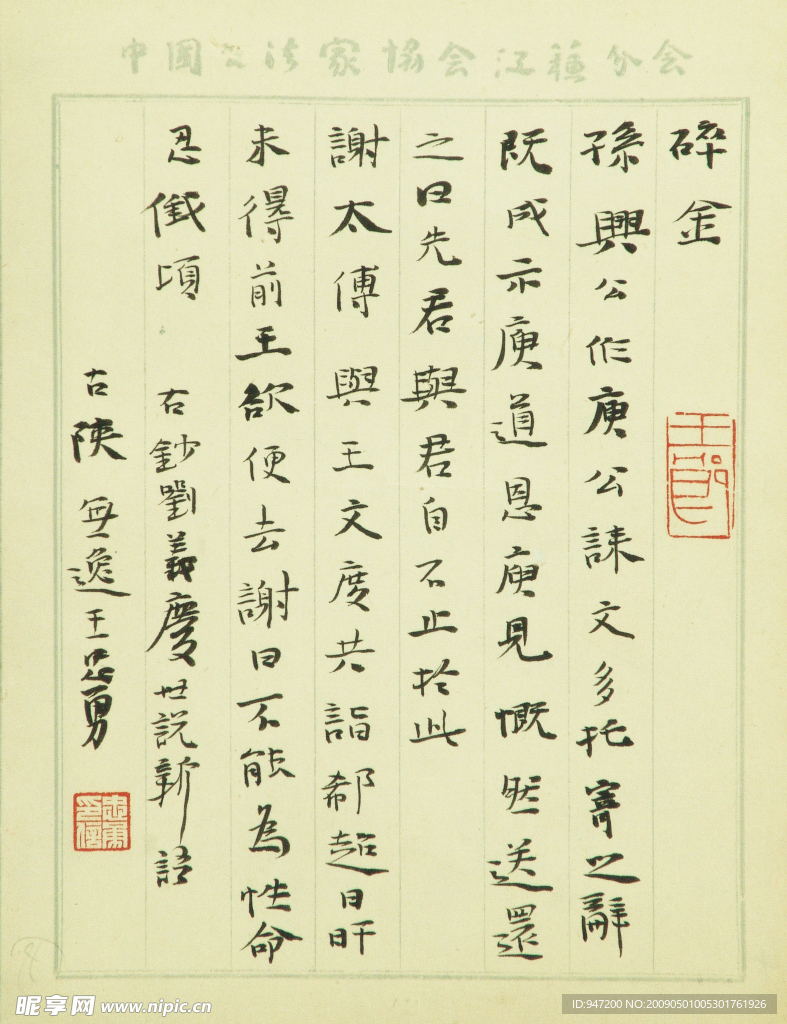 中国书法家協会江蘇分会
碎金
孫興公作庾公誄文多托寄之辭
既成示庾道恩庾見慨然送還
之曰先君與君自不止於此
謝太傅與王文度共詣郗超日旰
未得前王欲便去謝曰不能為性命
忍俄頃 右鈔劉義慶世説新語
古陝無逸王忠勇
忠勇印信
昵享网 www.nipic.cn
ID:947200 NO:20090501005301761926